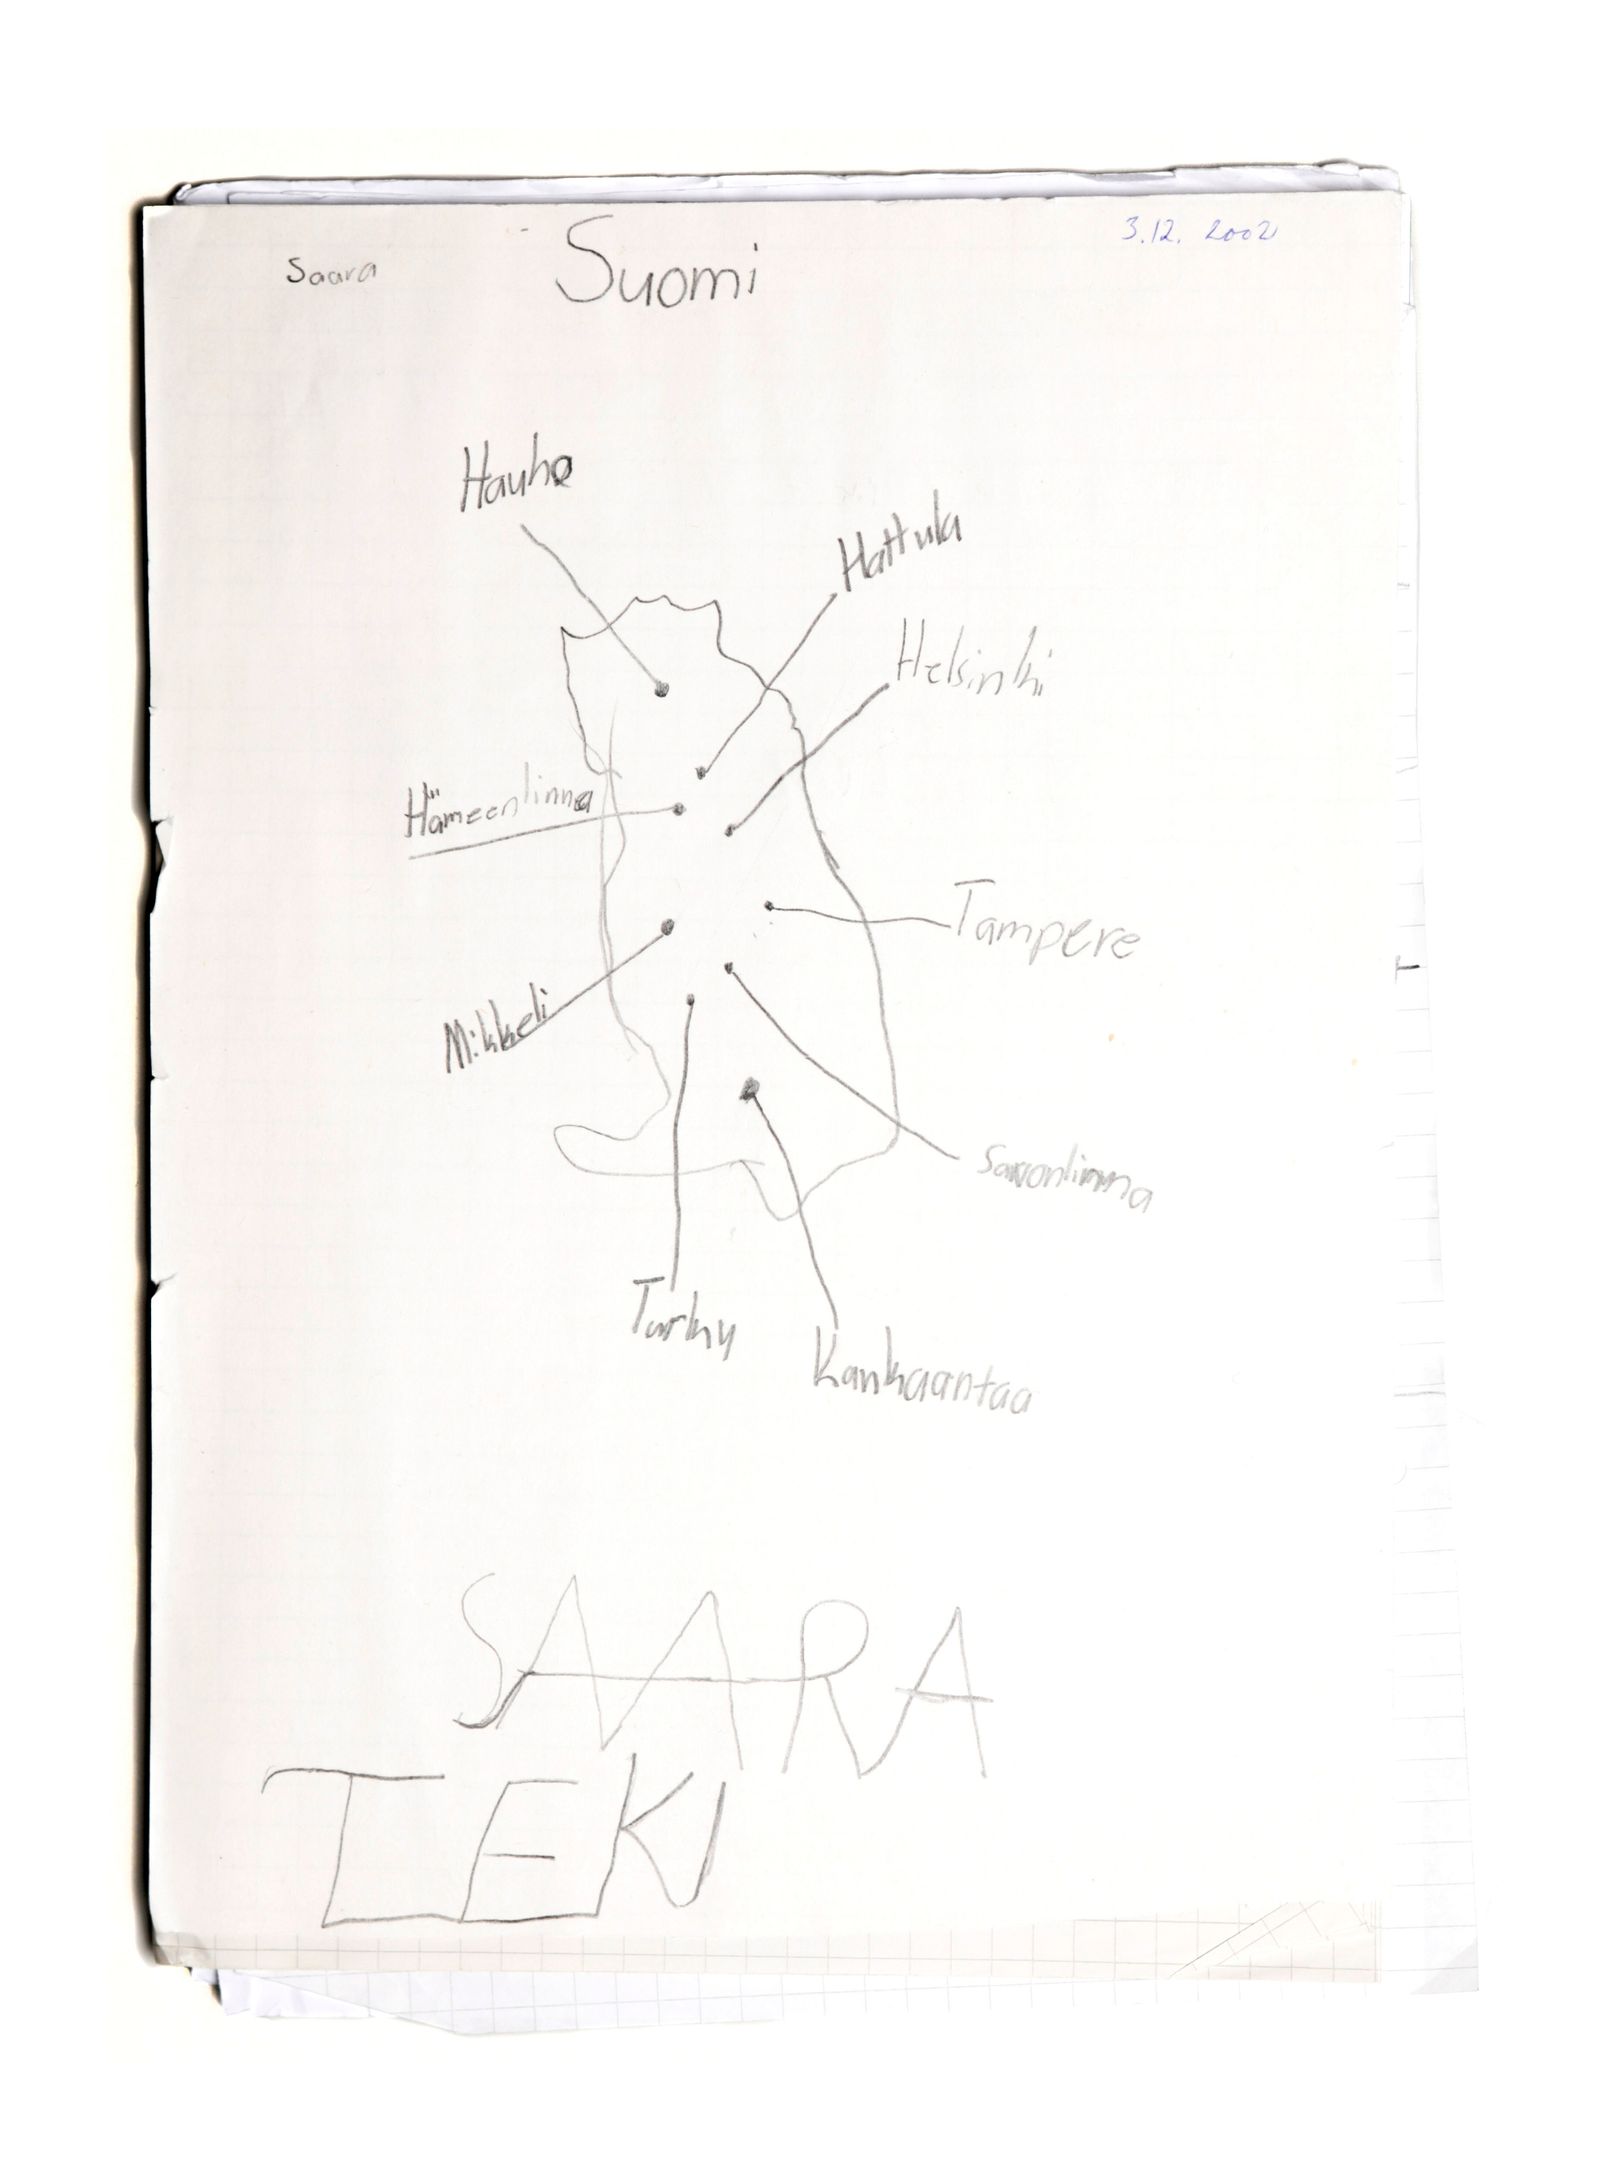 Saara
Suomi
3.12. 2002
Hauho
Hattula
Helsinki
Hämeenlinna
Tampere
Mikkeli
Savonlinna
Turku
Kankaantaa
SAARA
TEKI